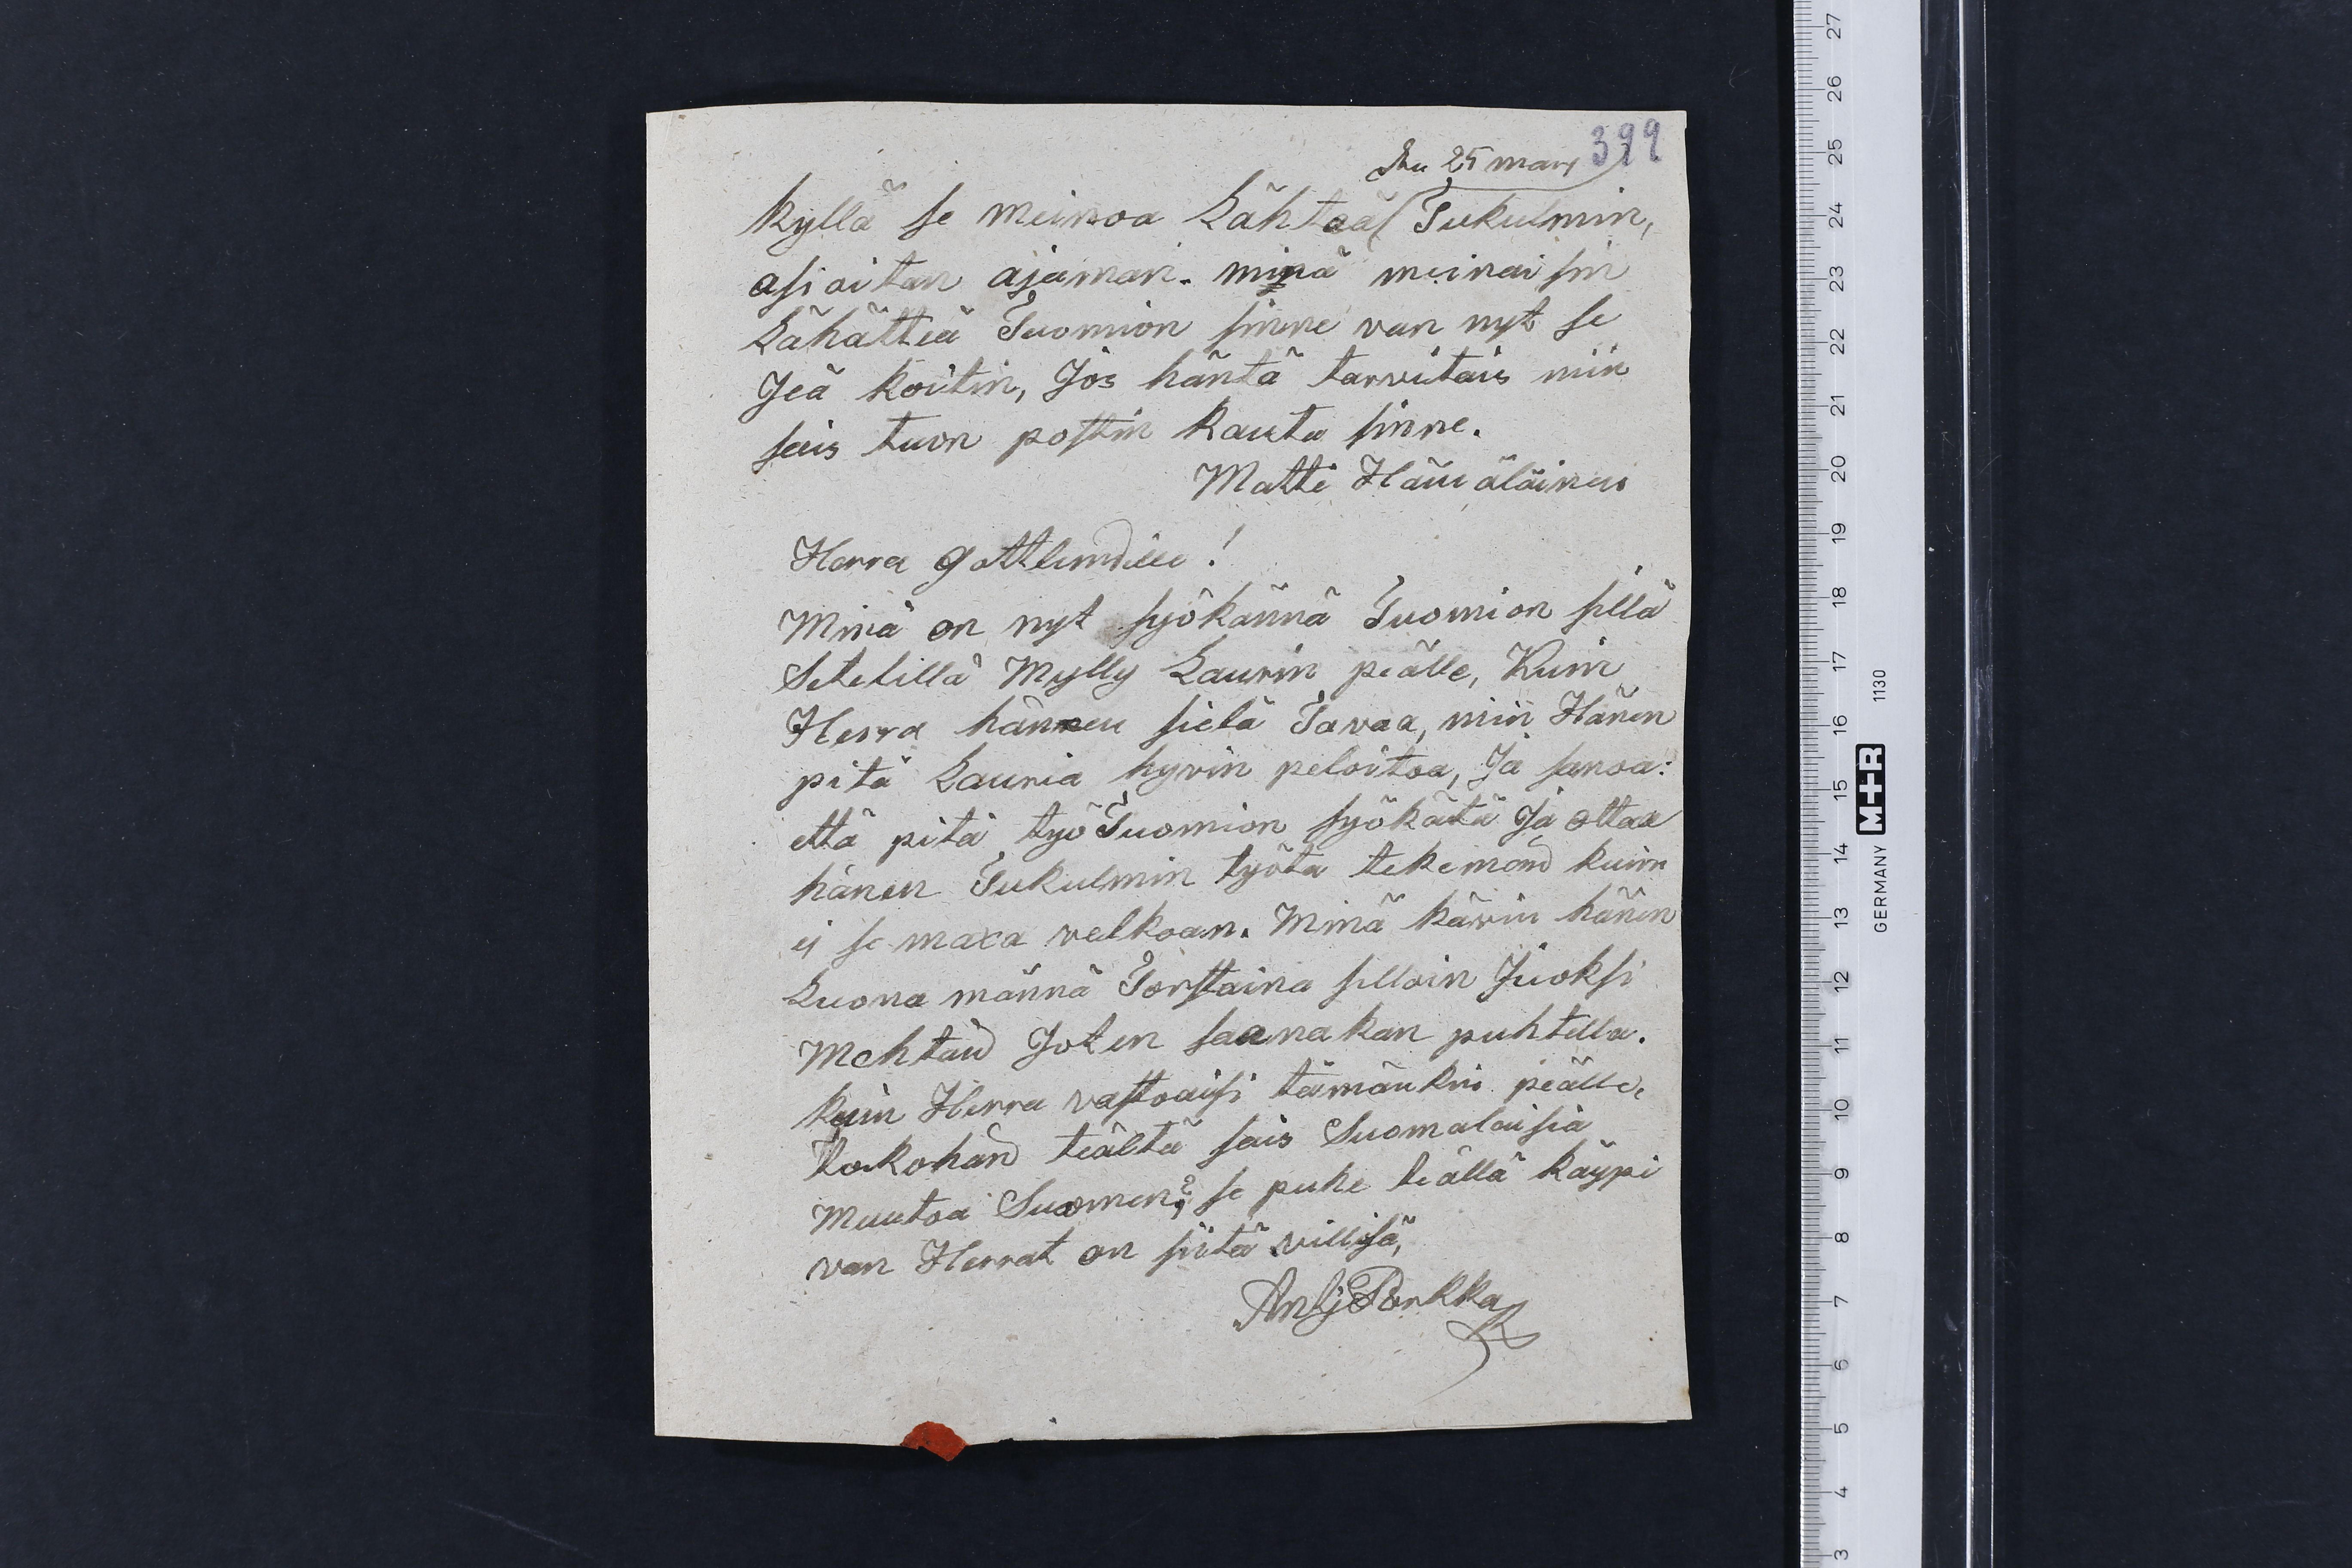 399
Den 25 mars
kyllä se meinoa Lähteä Tukulmin,
asioitan ajaman. minä meinaisin
Lähätteä Tuomion sinne van nyt se
Jeä koitin, Jos häntä tarvitais niin
sais tuon postin kauta sinne.
Matti Hämäläinen
Herra Gottlundille!
Minä on nyt syökännä Tuomion sillä
Setelillä Mylly Laurin peälle, Kuin
Herra hännen sielä Tavaa, niin Hänen
pitä Lauria hyvin peloitoa, Ja sanoa:
että pitä työ Tuomion syökätä Ja ottaa
hänen Tukulmin työtä tekemänd kuin
ej se maxa velkoan. Minä kävin hänen
Luona männä Torstaina silloin Juoksi
Mehtäd Joten saanakan puhtella.
kuin Herra vastoaisi tämänkin peälle,
Kokohand teältä sais Suomalaisia
Muutoa Suomen? se puhe teällä käypi
van Herrat on siitä villisä,
Anß Porkka
27
26
25
24
23
22
21
20
19
18
17
16
15
14
13
12
11
10
9
8
7
6
5
4
3
GERMANY M+R 1130